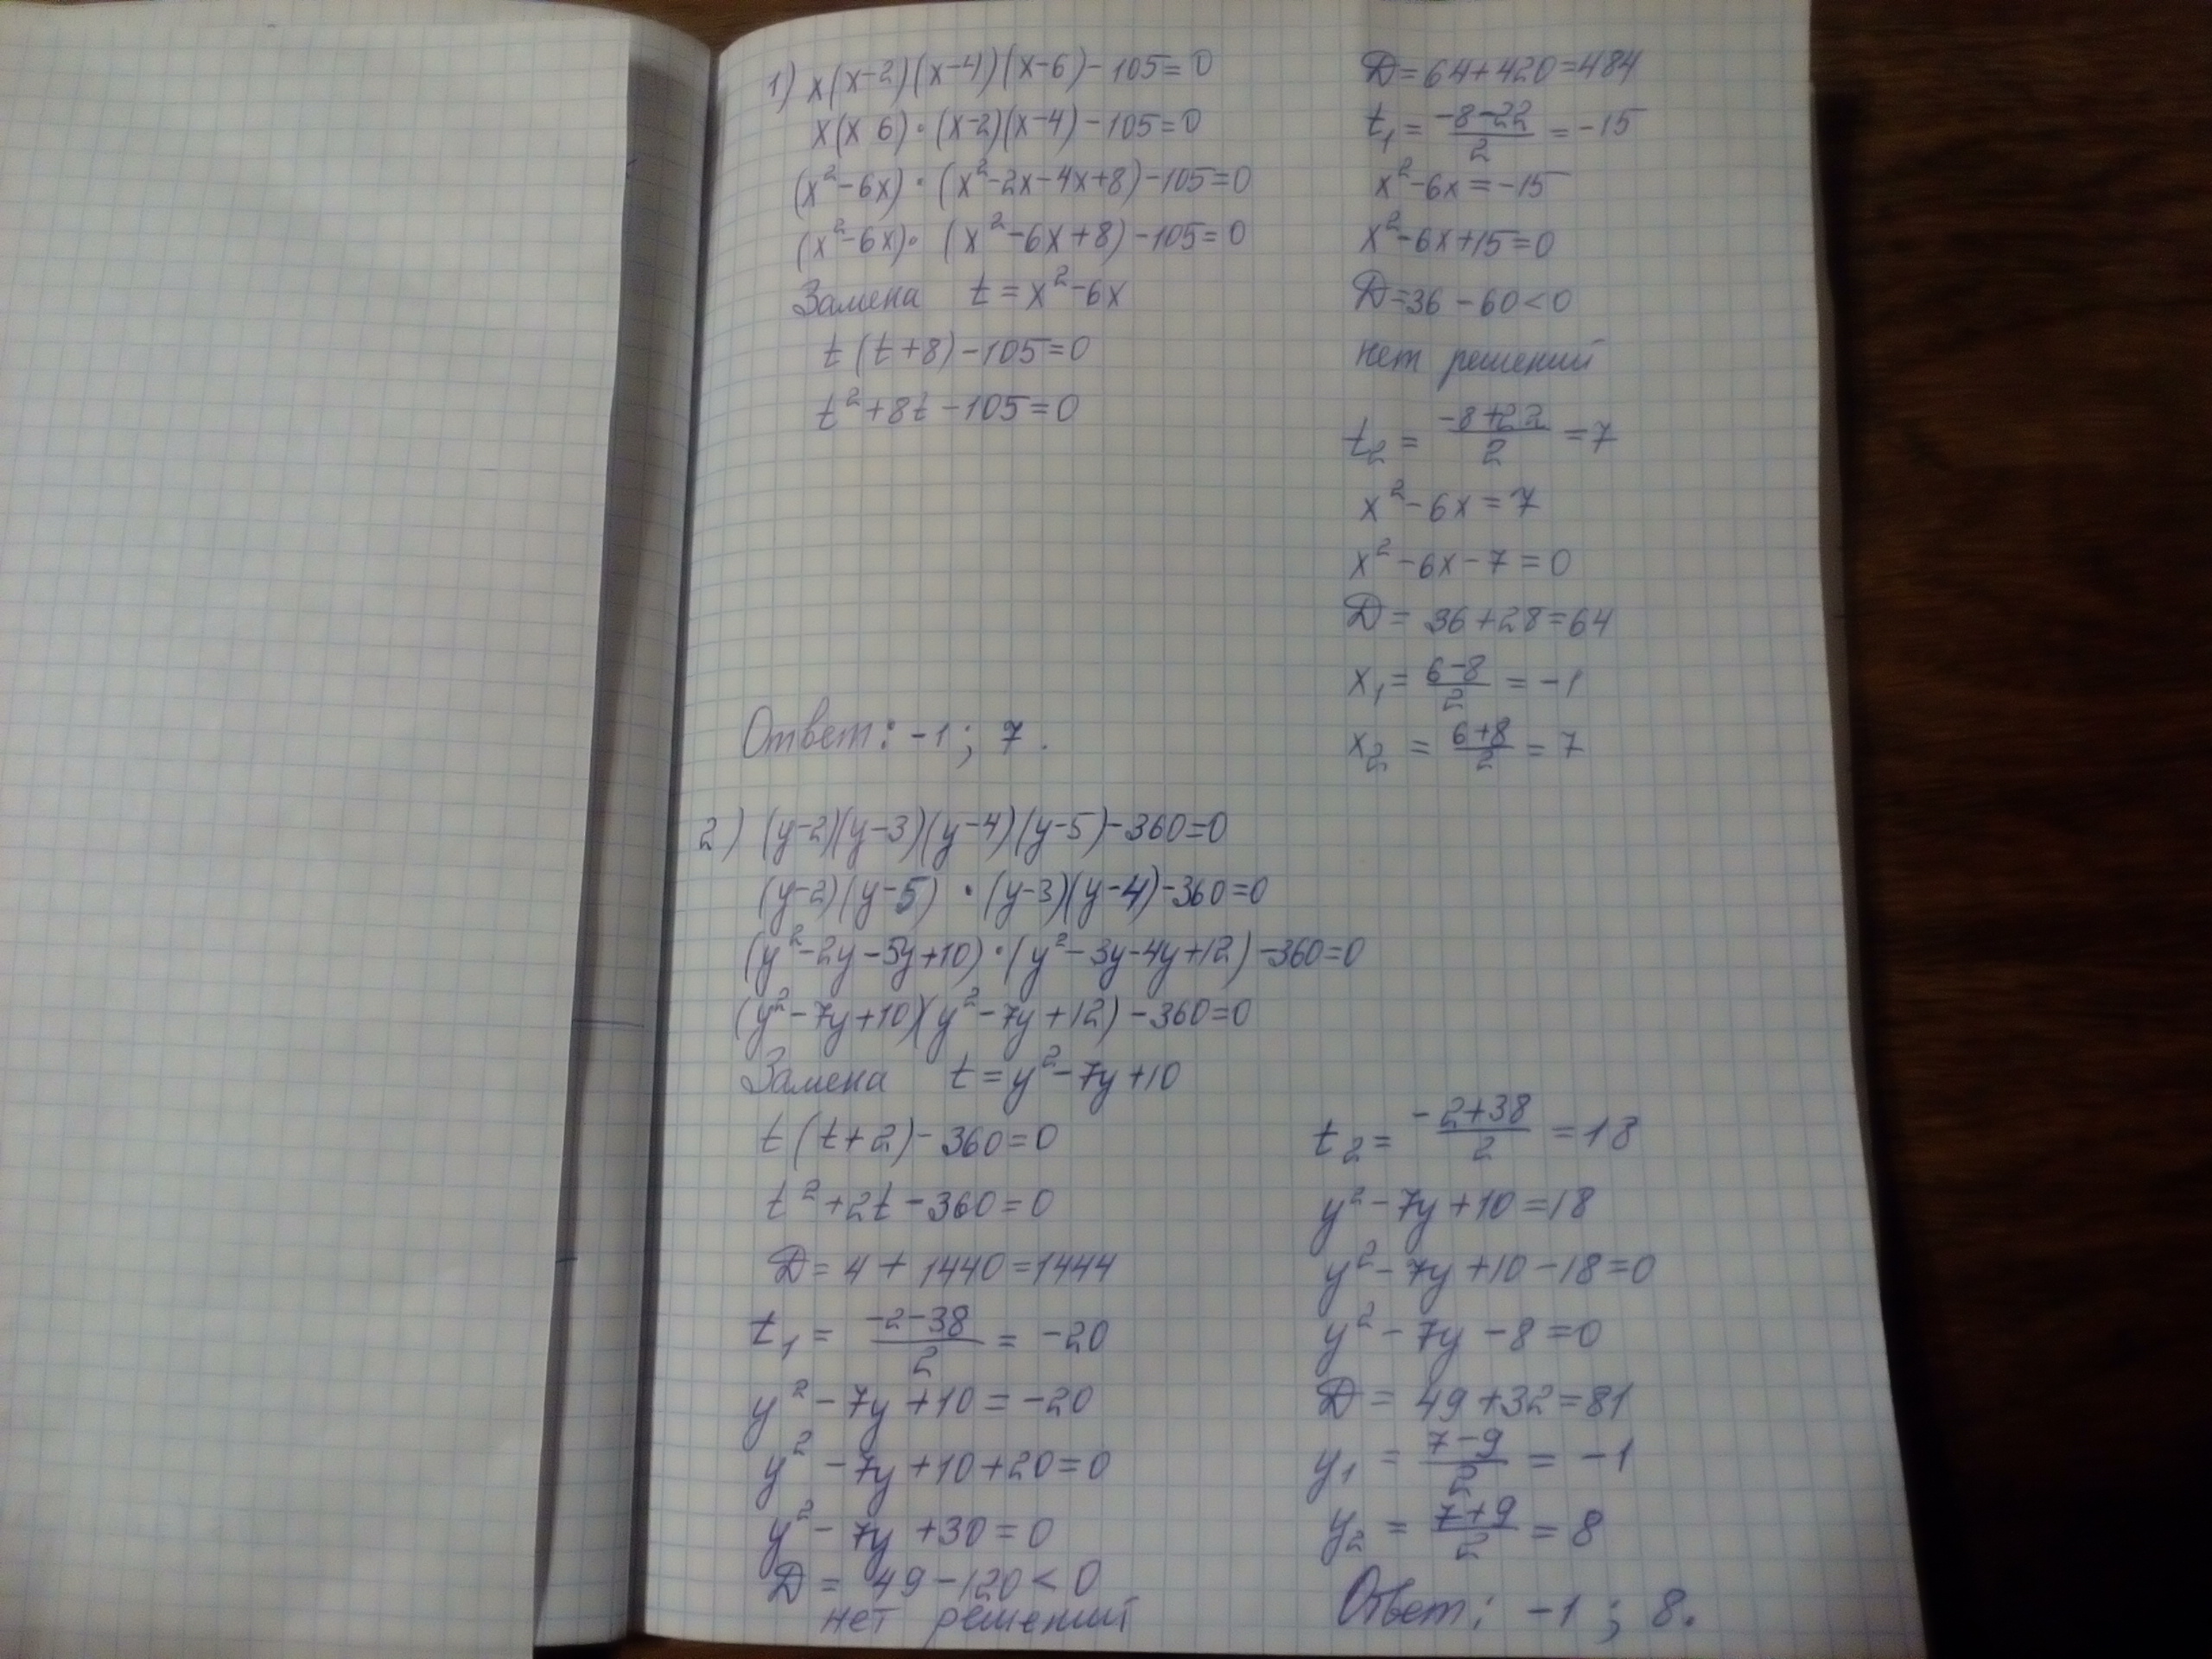 1) x(x-2)(x-4)(x-6)-105=0
x(x 6)·(x-2)(x-4)-105=0
(x²-6x)·(x²-2x-4x+8)-105=0
(x²-6x)·(x²-6x+8)-105=0
Замена t=x²-6x
t(t+8)-105=0
t²+8t-105=0
D=64+420=484
t₁=(-8-22)/2=-15
x²-6x=-15
x²-6x+15=0
D=36-60<0
нет решений
t₂=(-8+22)/2=7
x²-6x=7
x²-6x-7=0
D=36+28=64
x₁=(6-8)/2=-1
x₂=(6+8)/2=7
Ответ: -1; 7.
2) (y-2)(y-3)(y-4)(y-5)-360=0
(y-2)(y-5)·(y-3)(y-4)-360=0
(y²-2y-5y+10)·(y²-3y-4y+12)-360=0
(y²-7y+10)(y²-7y+12)-360=0
Замена t=y²-7y+10
t(t+2)-360=0
t²+2t-360=0
D=4+1440=1444
t₁=(-2-38)/2=-20
y²-7y+10=-20
y²-7y+10+20=0
y²-7y+30=0
D=49-120<0
нет решений
t₂=(-2+38)/2=18
y²-7y+10=18
y²-7y+10-18=0
y²-7y-8=0
D=49+32=81
y₁=(7-9)/2=-1
y₂=(7+9)/2=8
Ответ: -1; 8.